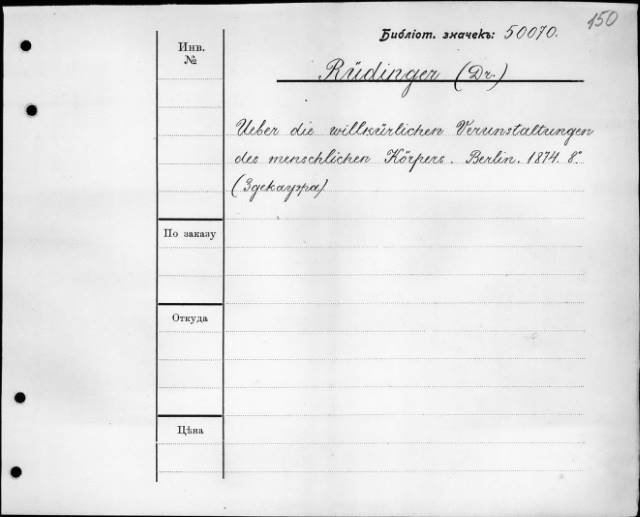 150
Библіот. значекъ: 50070.
Инв.
№
Rüdinger (Dr.)
Ueber die willkürlichen Verunstaltungen
des menschlichen Körpers. Berlin. 1874. 8°.
(Здекауэра)
По заказу
Откуда
Цѣна